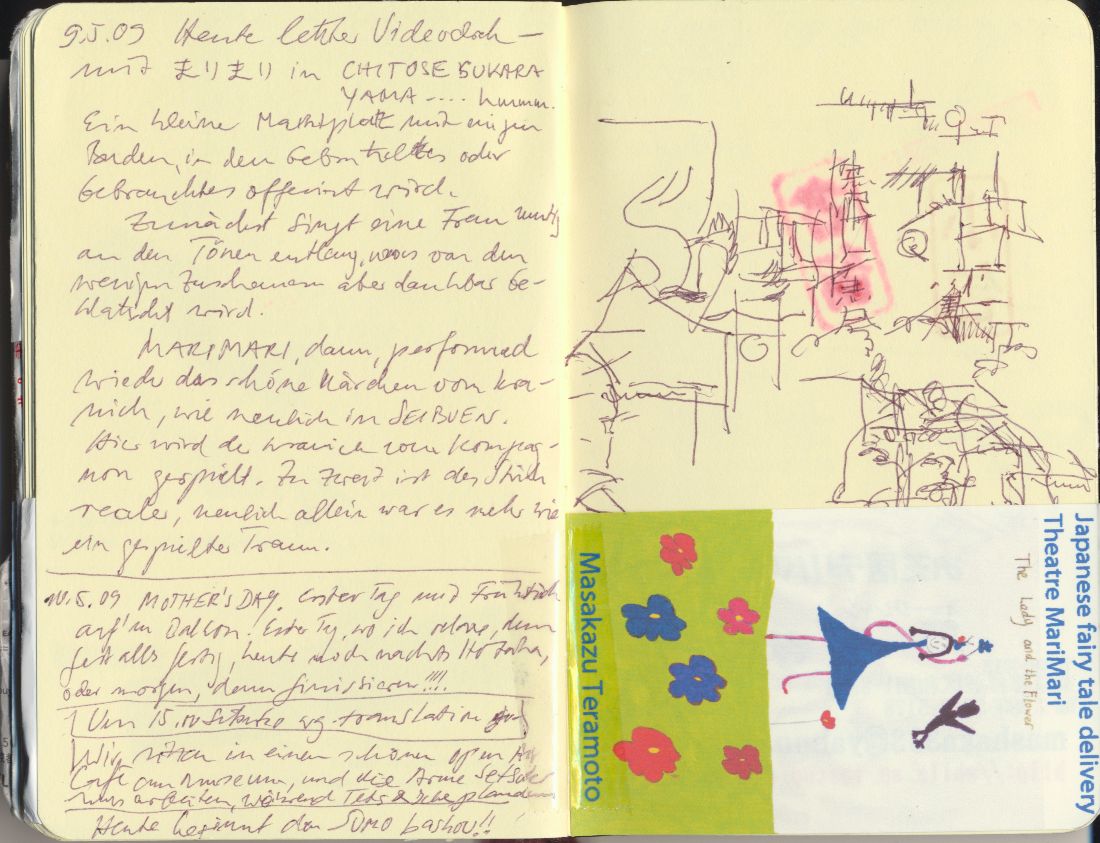 9.5.09 Heute letzter Videodreh –
mit まりまり in CHITOSE SUKARA
YAMA ---- hmmm.
Ein kleiner Marktplatz mit einigen
Buden, in denen oder
Gebrauchtes wird.
Zunächst singt eine Frau mutig
an den Tönen entlang, was von den
wenigen Zuschauern aber dankbar be-
klatscht wird.
MARIMARI, dann, performed
wieder das schöne Märchen vom Kra-
nich, wie neulich in SEIBUEN.
Hier wird der Kranich vom Kompag-
non gespielt. Zu zweit ist das Stück
realer, neulich allein war es mehr wie
ein gespielter Traum.
10.5.09 MOTHER'S DAY. Erster Tag mit Frühstück
auf'm Balkon! Erster Tag, wo ich relaxe, denn
fast alles fertig, heute noch nachts
oder morgen, dann finissieren!!!!
Um 15.00 Setsuko wg. translation
Wir sitzen in einem schönen open Air
Café am Museum, und die Arme Setsuko
muss arbeiten, während plaudern
Heute beginnt der SUMO bashou!!
Japanese fairy tale delivery
Theatre MariMari
The Lady and the Flower
Masakazu Teramoto